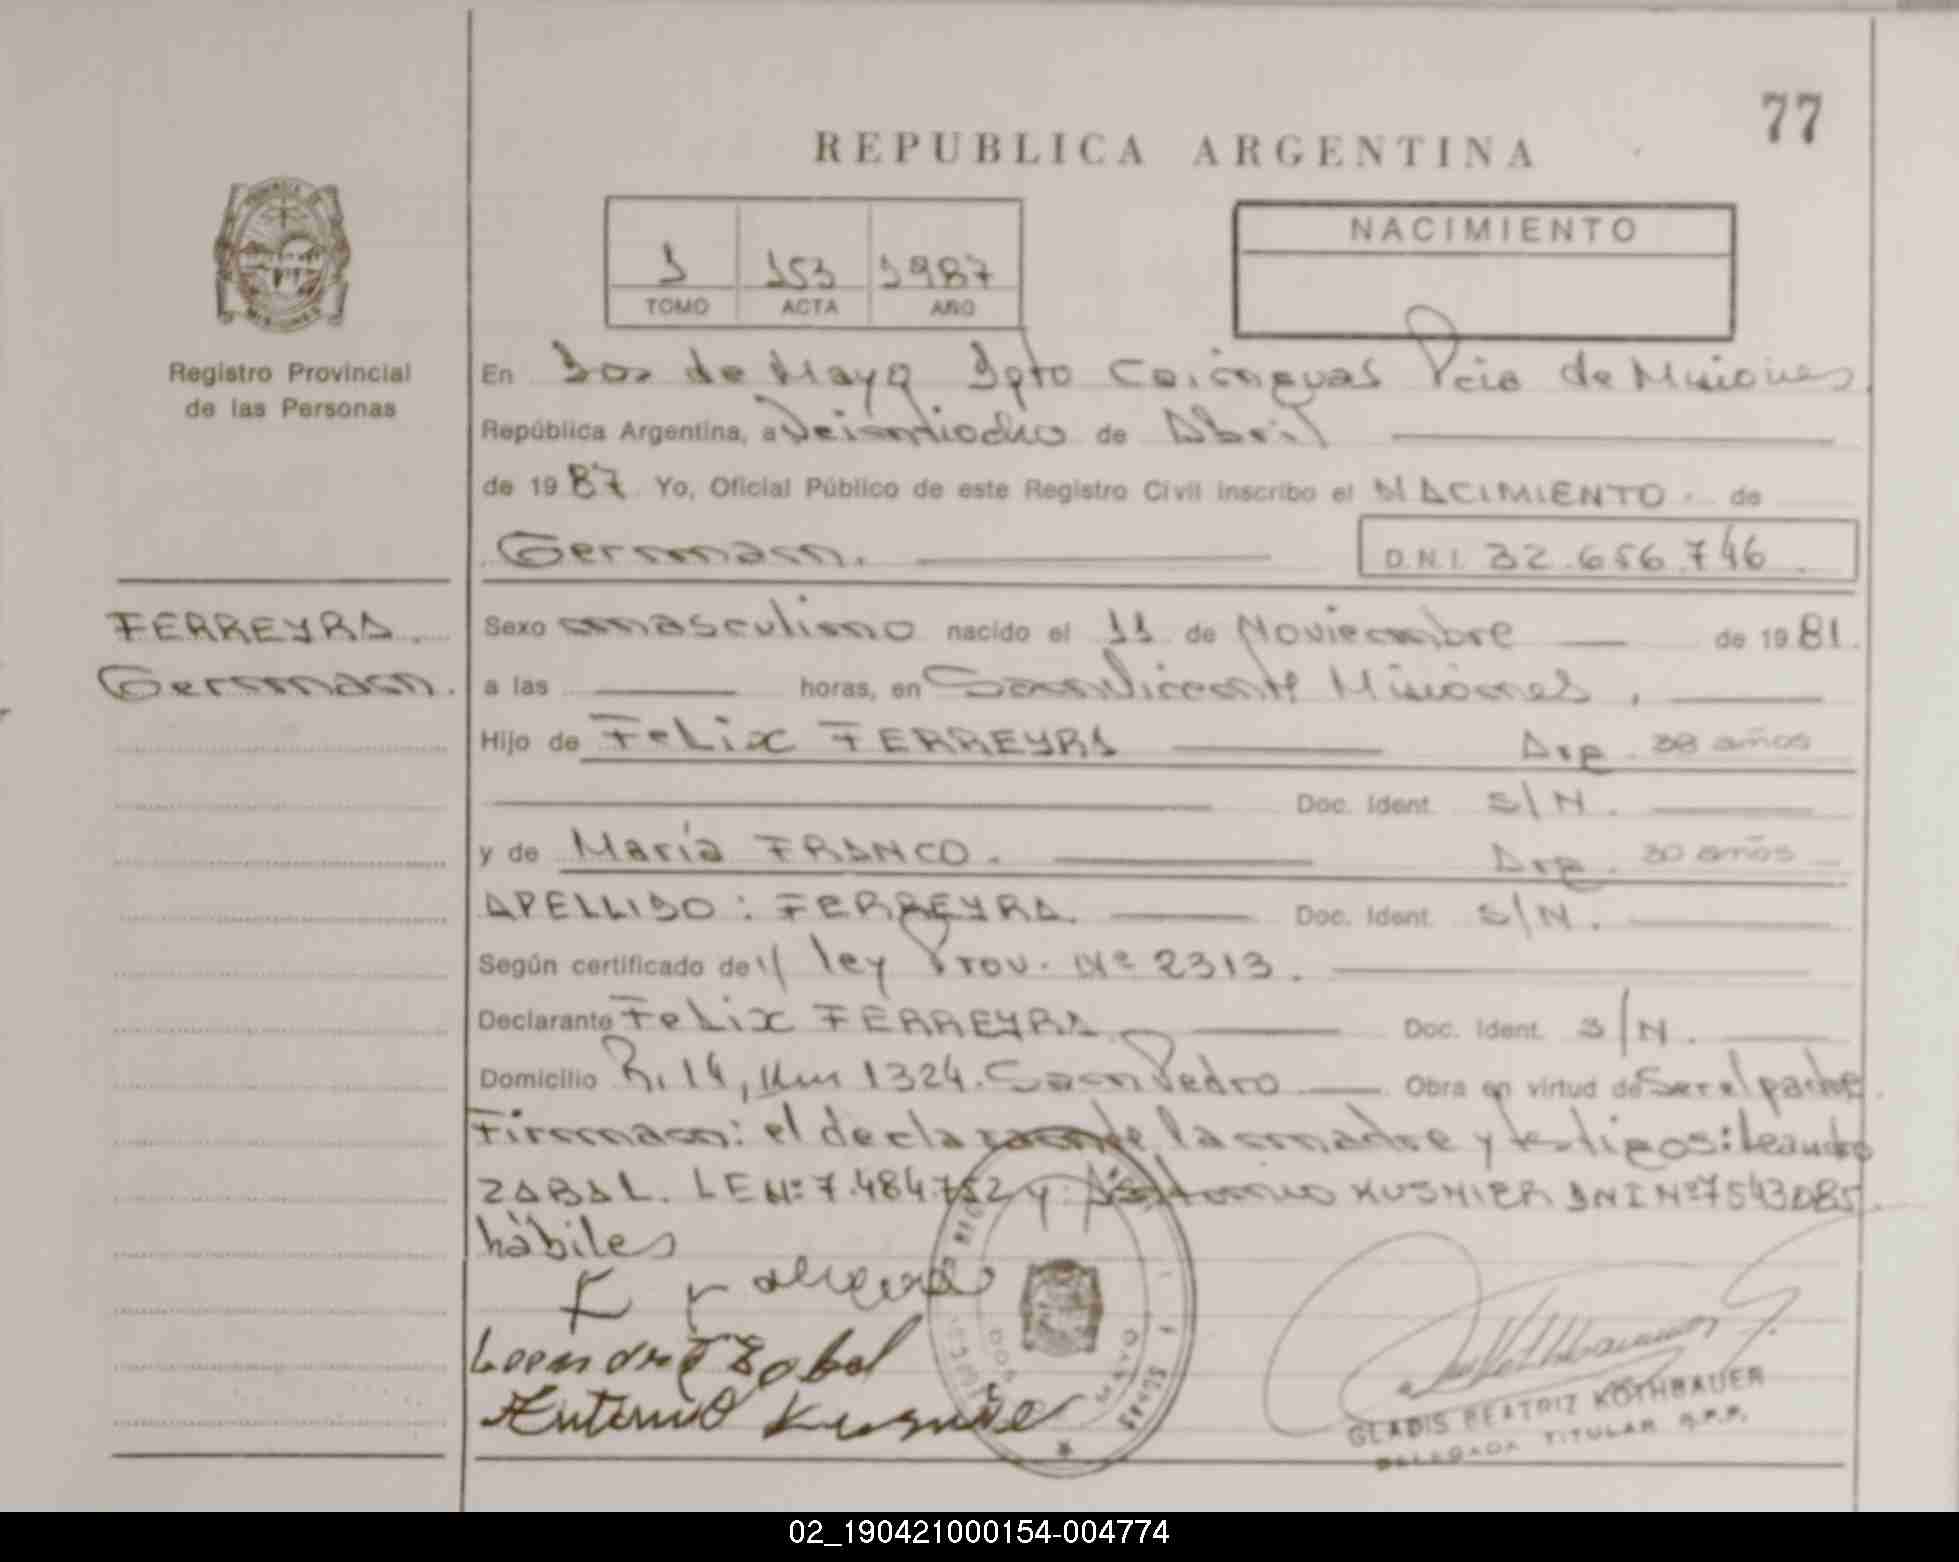 77
REPUBLICA ARGENTINA
NACIMIENTO
1 153 1987
TOMO ACTA AÑO
Registro Provincial
de las Personas
En Dos de Mayo Dpto Cainguas Pcia de Misiones
República Argentina, a Veintiocho de Abril
de 1987 Yo, Oficial Público de este Registro Civil inscribo el NACIMIENTO de
German.
D.N.I. 32.656.746
FERREYRA.
German.
Sexo masculino nacido el 11 de Noviembre de 1981.
a las horas, en San Vicente Misiones,
Hijo de Felix FERREYRA Arg. 38 años
Doc. Ident. S/N.
y de María FRANCO. Arg. 30 años
APELLIDO: FERREYRA. Doc. Ident. S/N.
Según certificado de ley Prov. Nº 2313.
Declarante Felix FERREYRA. Doc. Ident. S/N.
Domicilio R. 14, Km 1324. San Pedro Obra en virtud de Ser el padre.
Firman: el declarante, la madre y testigos: Leandro
ZABAL. LE Nº 7.484.752 y Antonio KUSNIER DNI Nº 7543085.
hàbiles
Leandro Zabal
Antonio Kusnier
DOS MAYO
GLADIS BEATRIZ KOTHBAUER
DELEGADA TITULAR R.P.P.
02_190421000154-004774